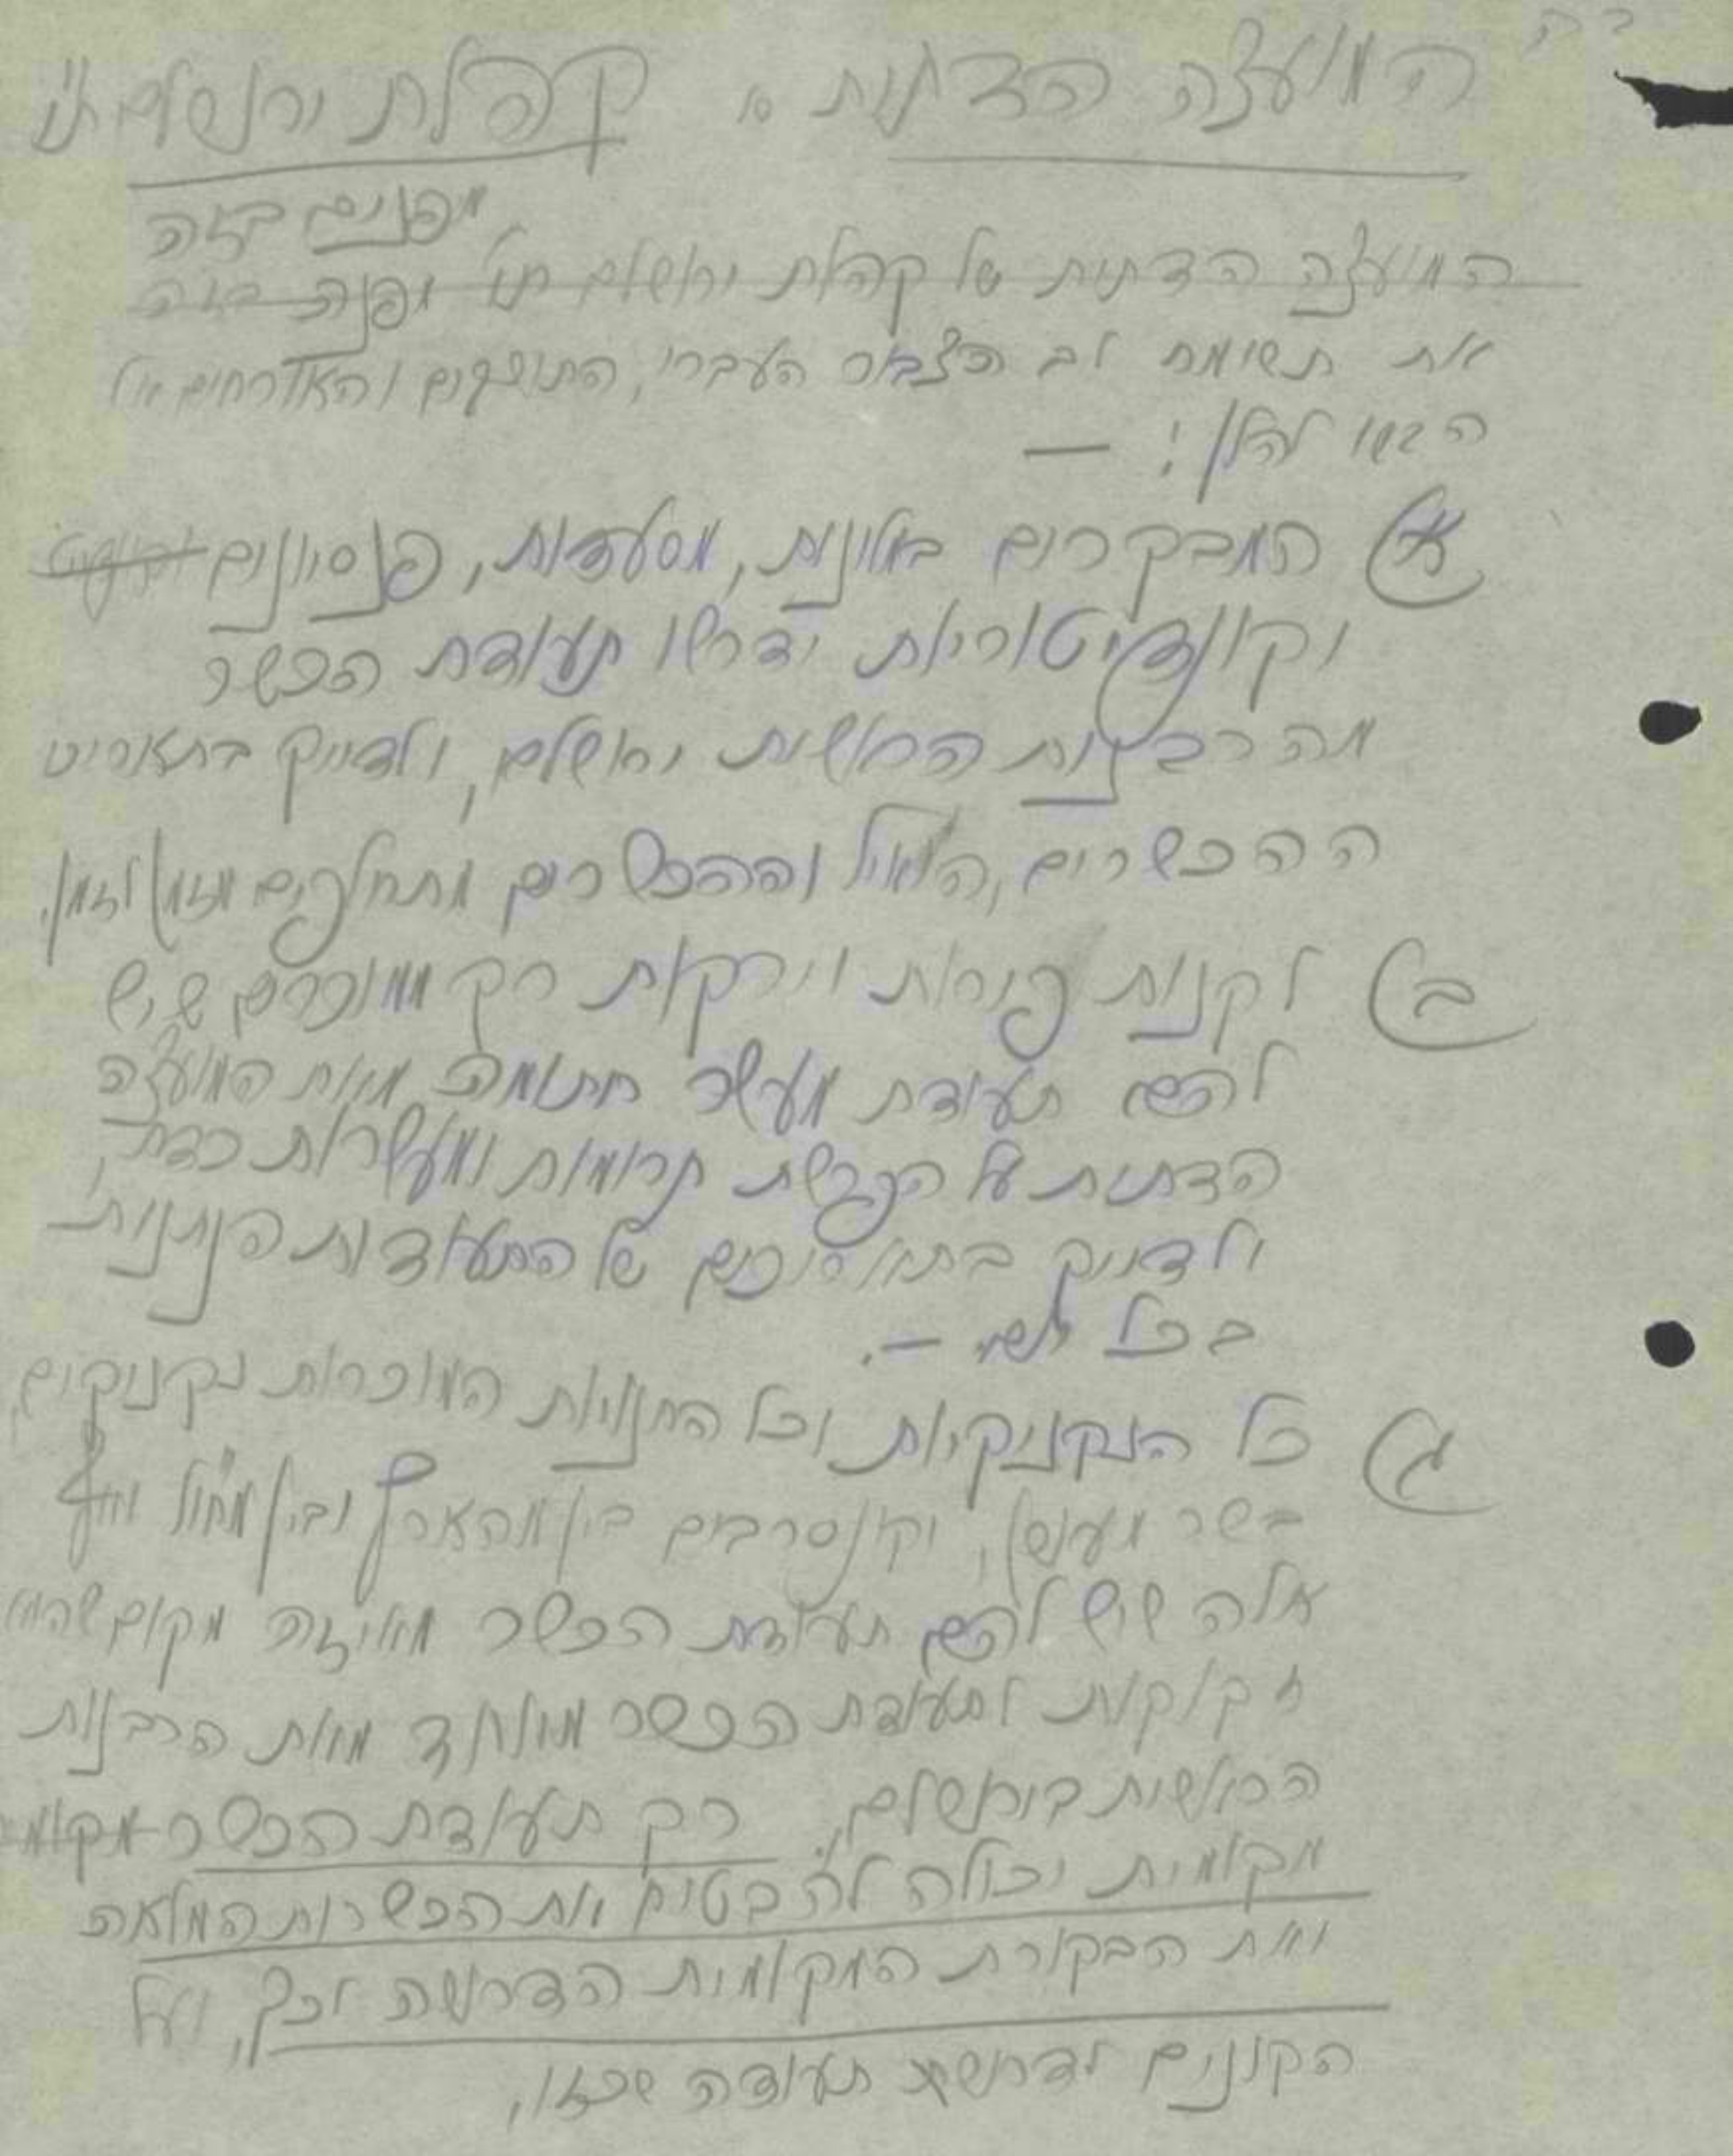 ב"ה
המועצה הדתית קהלת ירושלם ת"ו
מפנים בזה
המועצה הדתית של קהלת ירושלם ת"ו מפנה בזה
את תשומת לב הצבור העברי, התושבים והאורחים אל
הבא להלן: —
א) המבקרים במלונות, מסעדות, פנסיונים
וקונדיטוריות ידרשו תעודת הכשר
מהרבנות הראשית ירושלם, ולדייק בתאריכי
ההכשרים, הואיל וההכשרים מתחלפים מזמן לזמן.
ב) לקנות פירות וירקות רק ממוכרים שיש
להם תעודת מעשר חתומה מאת המועצה
הדתית על הפרשת תרומות ומעשרות כדת,
ולדייק בתאריכים של התעודות הניתנות
בכל —.
ג) כל הנקניקיות וכל החנויות המוכרות נקניקים,
בשר מעושן, וקונסרבים בין מהארץ ובין מחו"ל ואף
אלה שיש להם תעודת הכשר מאיזה מקום שהוא
זקוקות לתעודת הכשר מיוחד מאת הרבנות
הראשית בירושלם. רק תעודת הכשר מקומית
מקומית יכולה להבטיח את הכשרות המלאה
ואת הבקורת המקומית הדרושה לכך, ועל
הקונים לדרוש תעודה שכזו.